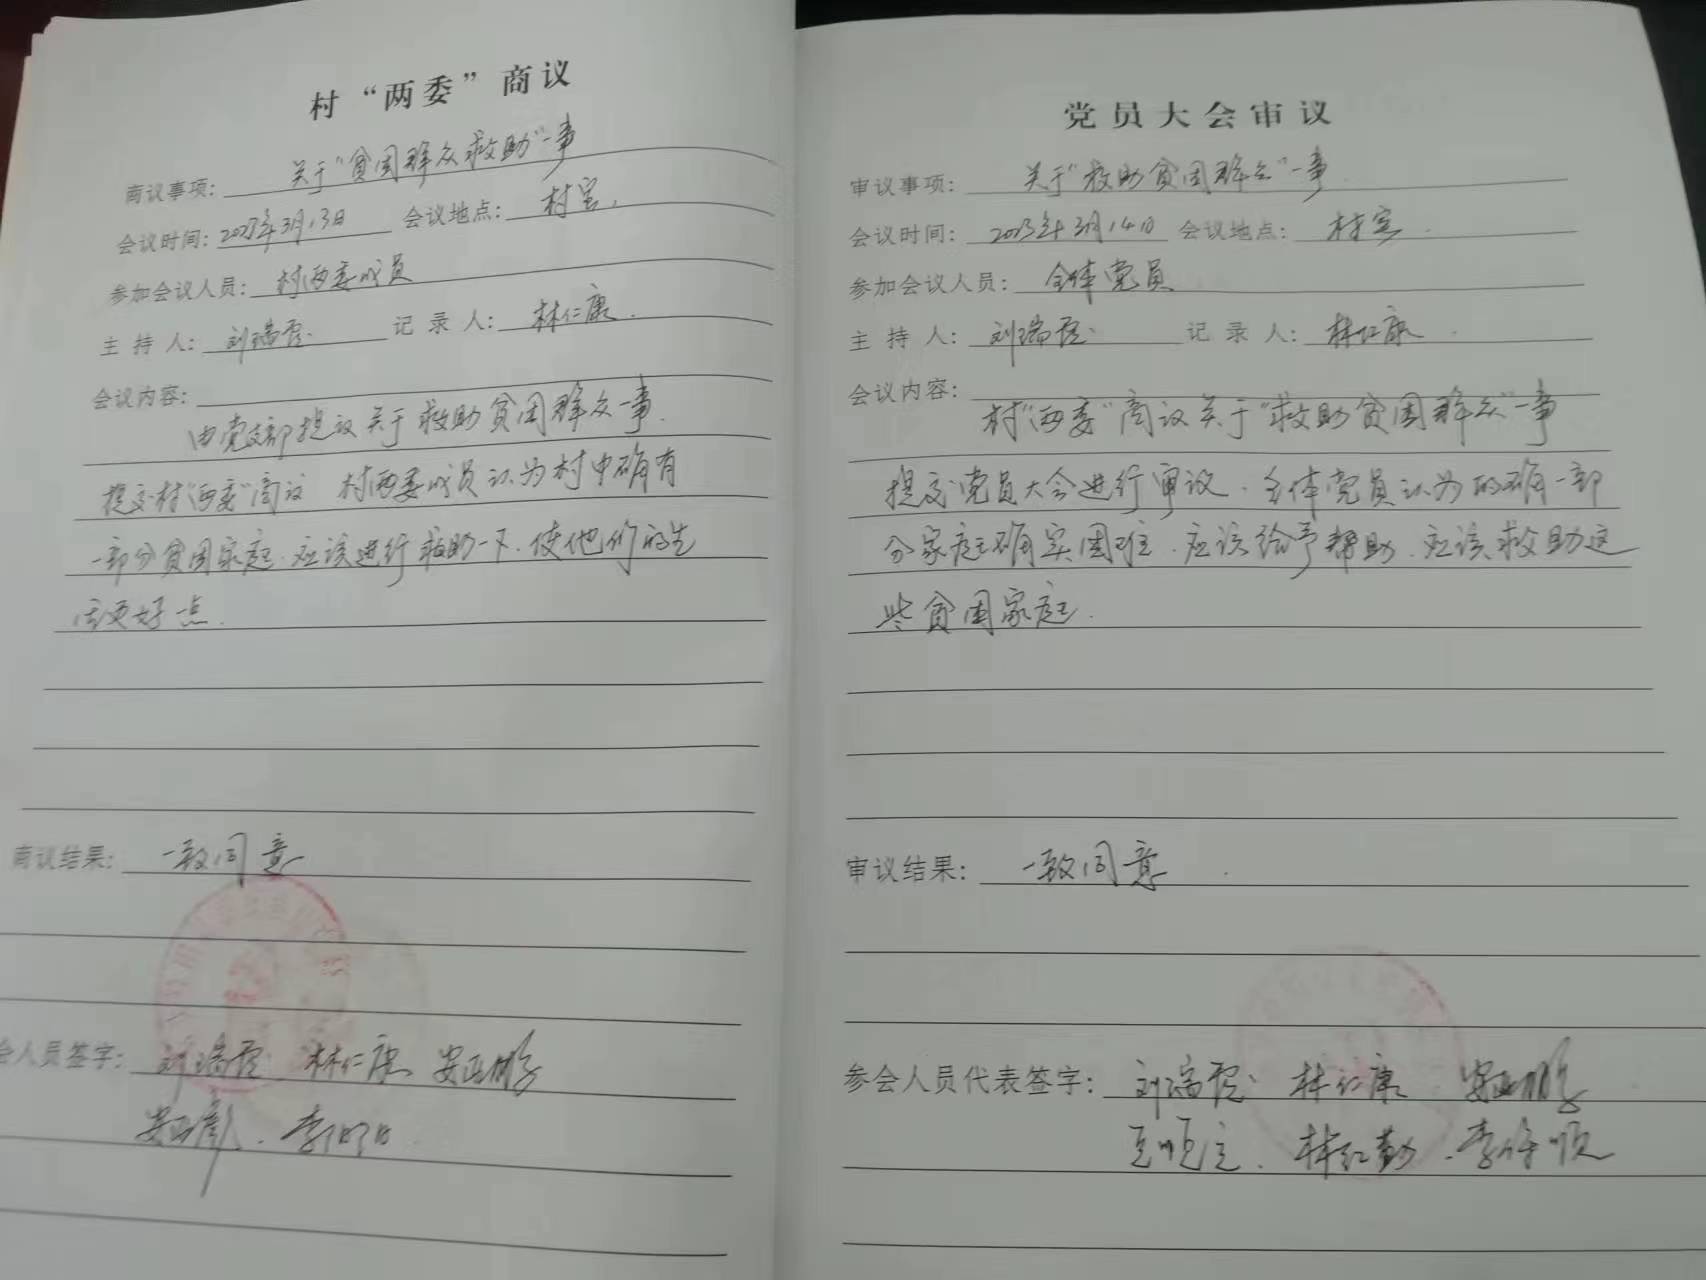 村“两委”商议
商议事项：关于“贫困群众救助”一事
会议时间：2023年3月13日 会议地点：村室.
参加会议人员：村两委成员
主持人：刘瑞 记录人：林仁康.
会议内容：
由党支部提议关于救助贫困群众一事.
提交村“两委”商议 村两委成员认为村中确有
一部分贫困家庭.应该进行救助一下.使他们的生
活更好一点.
商议结果：一致同意
会人员签字：刘瑞 林仁康
李
党员大会审议
审议事项：关于“救助贫困群众”一事
会议时间：2023年3月14日 会议地点：村室.
参加会议人员：全体党员
主持人：刘瑞 记录人：林仁康.
会议内容：
村“两委”商议关于“救助贫困群众”一事
提交党员大会进行审议.全体党员认为的确一部
分家庭确实困难.应该给予帮助.应该救助这
些贫困家庭.
审议结果：一致同意.
参会人员代表签字：刘瑞 林仁康
林红 李 顺